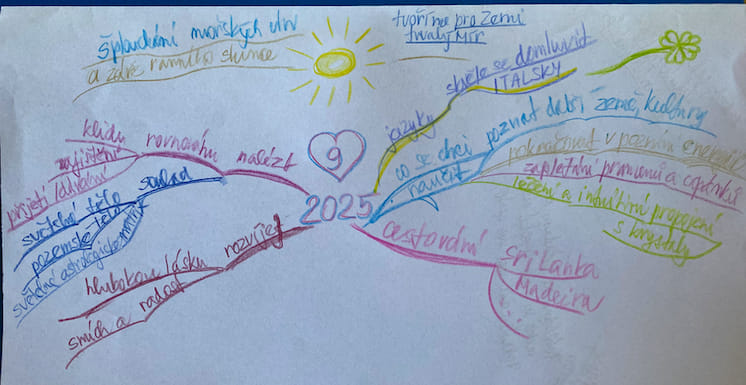 šplouchání mořských vln
a záře ranního slunce
tvoříme pro Zemi
trvalý Mír
skvěle se domluvit
ITALSKY
jazyky
co se chci
naučit
poznat další země, kultury
pokračovat v poznání energií
zaplétání pramenů a copánků
léčení a intuitivní propojení
s krystaly
9
2025
cestování
Srí Lanka
Madeira
...
nalézt
rovnováhu
klidu
zajištění
přijetí/dávání
soulad
světelné tělo
pozemské tělo
světelné astrologické
rozvíjet
hlubokou lásku
smích a radost